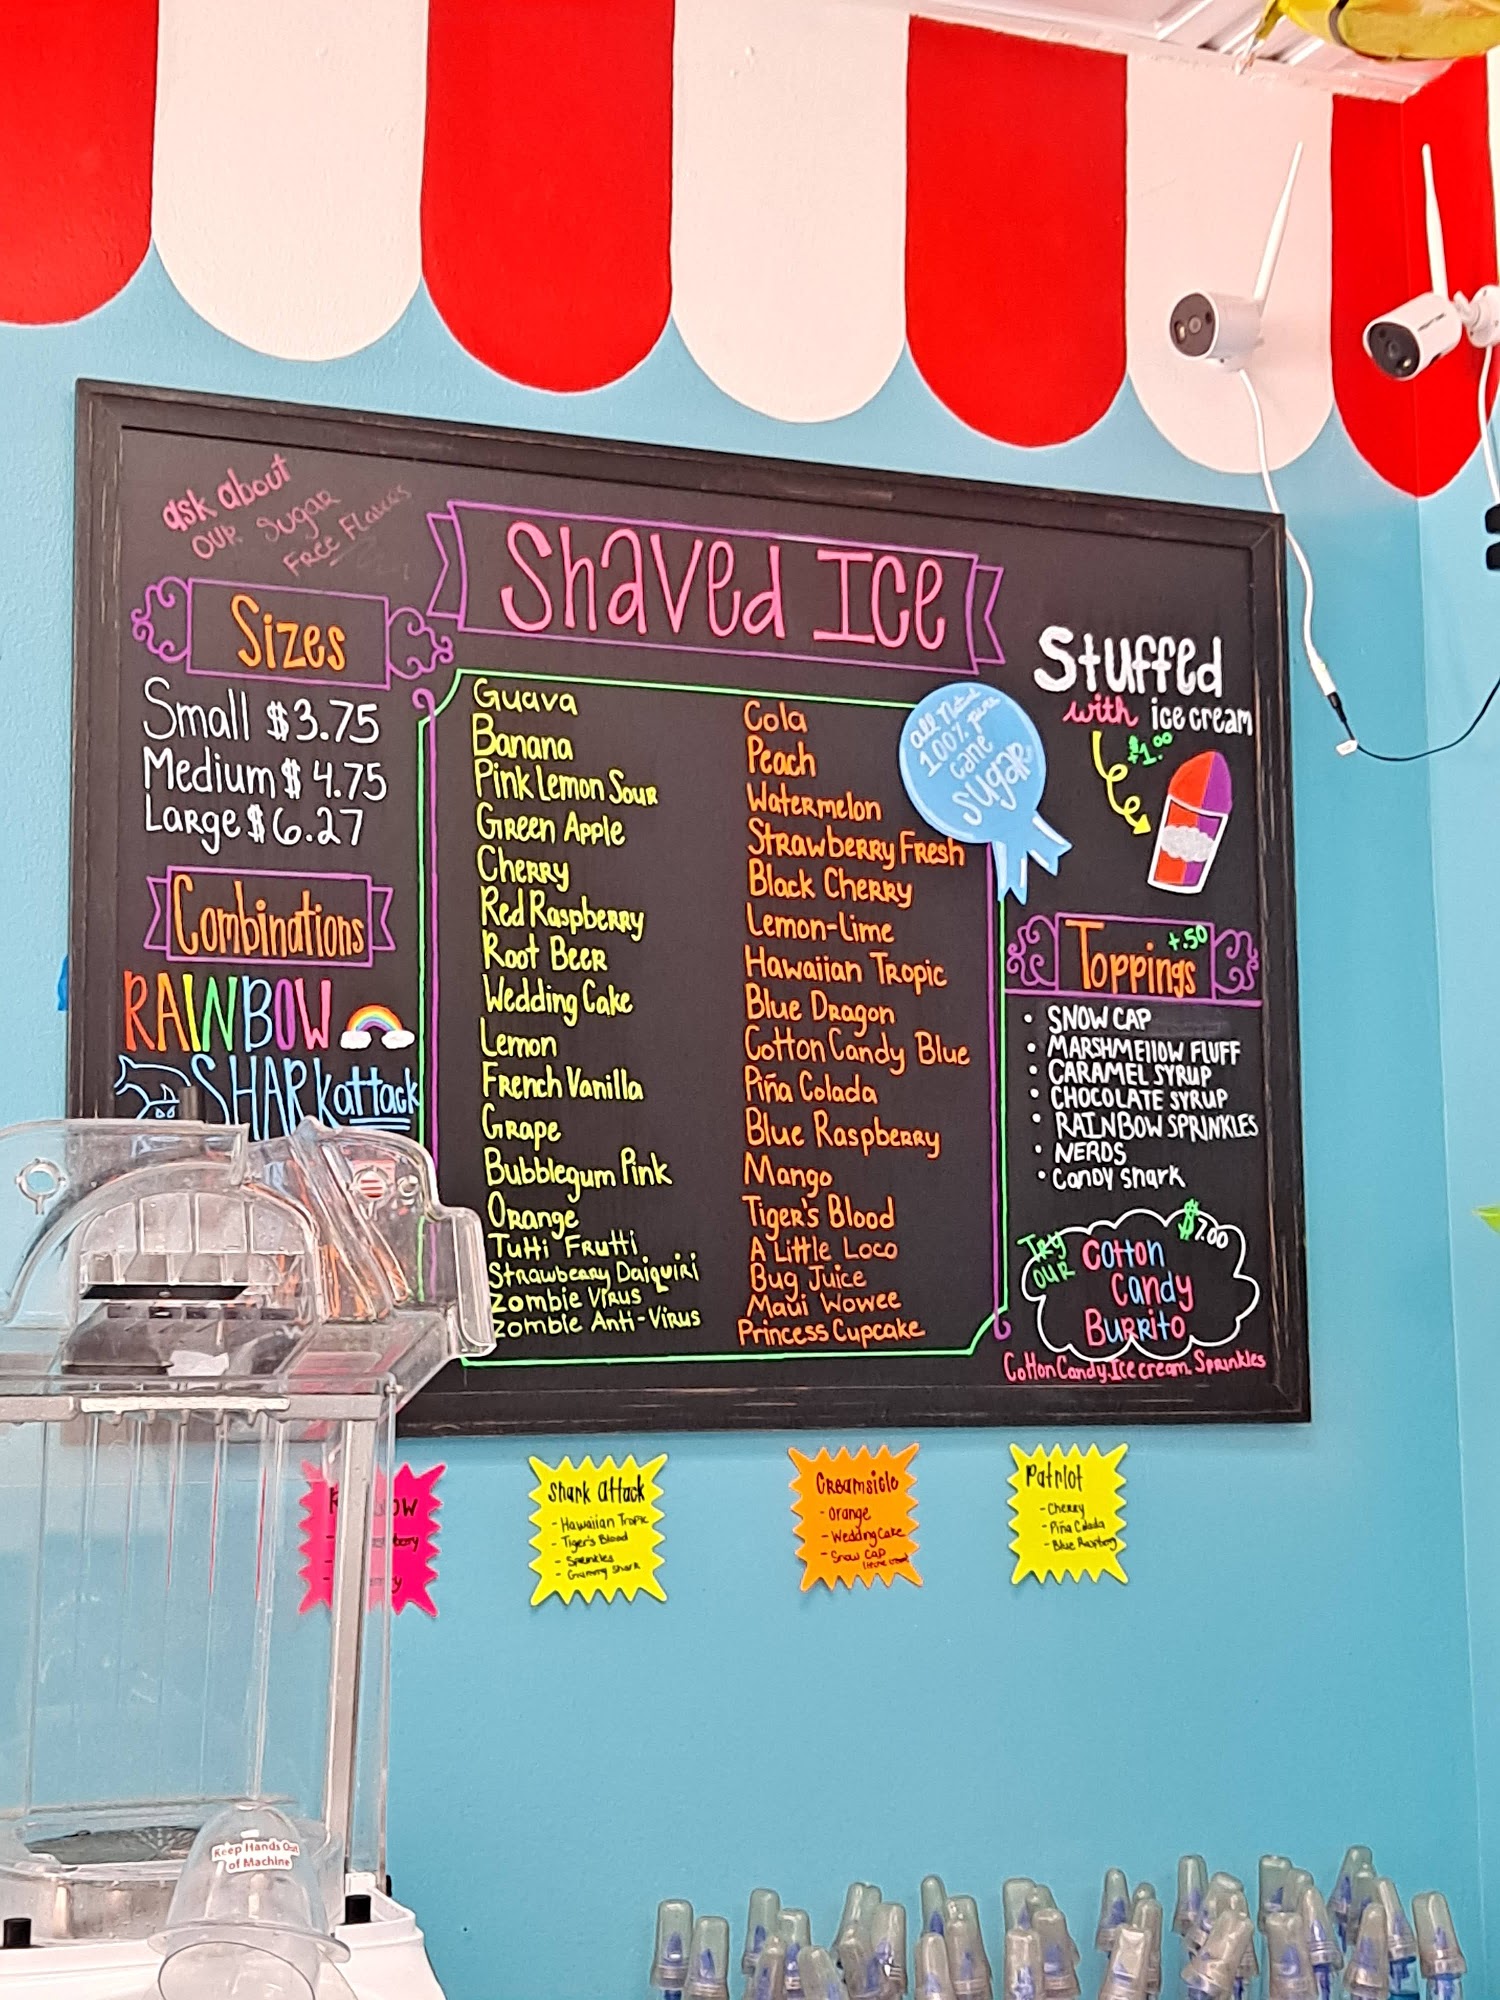 ask about
our Sugar
Free Flavors
Shaved Ice
Sizes
Small $3.75
Medium $4.75
Large $6.27
Combinations
RAINBOW
SHARK attack
Guava
Banana
Pink Lemon Sour
Green Apple
Cherry
Red Raspberry
Root Beer
Wedding Cake
Lemon
French Vanilla
Grape
Bubblegum Pink
Orange
Tutti Frutti
Strawberry Daiquiri
Zombie Virus
Zombie Anti-Virus
Cola
Peach
Watermelon
Strawberry Fresh
Black Cherry
Lemon-Lime
Hawaiian Tropic
Blue Dragon
Cotton Candy Blue
Piña Colada
Blue Raspberry
Mango
Tiger's Blood
A Little Loco
Bug Juice
Maui Wowee
Princess Cupcake
all Natural
100% pure
cane
sugar
Stuffed
with ice cream
+$1.00
Toppings +.50
• SNOW CAP
• MARSHMEllOW FLUFF
• CARAMEL SYRUP
• CHOCOLATE SYRUP
• RAINBOW SPRINKLES
• NERDS
• Candy Shark
TRY OUR
Cotton
Candy
Burrito
$7.00
Cotton Candy. Ice cream. Sprinkles
Shark attack
- Hawaiian Tropic
- Tiger's Blood
- Sprinkles
- Gummy Shark
Creamsicle
- Orange
- Wedding Cake
- Snow Cap
Patriot
- Cherry
- Piña Colada
- Blue Raspberry
Keep Hands Out
of Machine